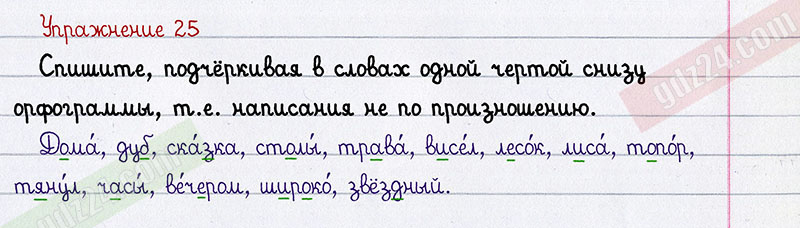 Упражнение 25
Спишите, подчёркивая в словах одной чертой снизу
орфограммы, т.е. написания не по произношению.
Дома́, дуб, ска́зка, столы́, трава́, висе́л, лесо́к, лиса́, топо́р,
тяну́л, часы́, ве́чером, широко́, звёздный.
gdz24.com
gdz24.com